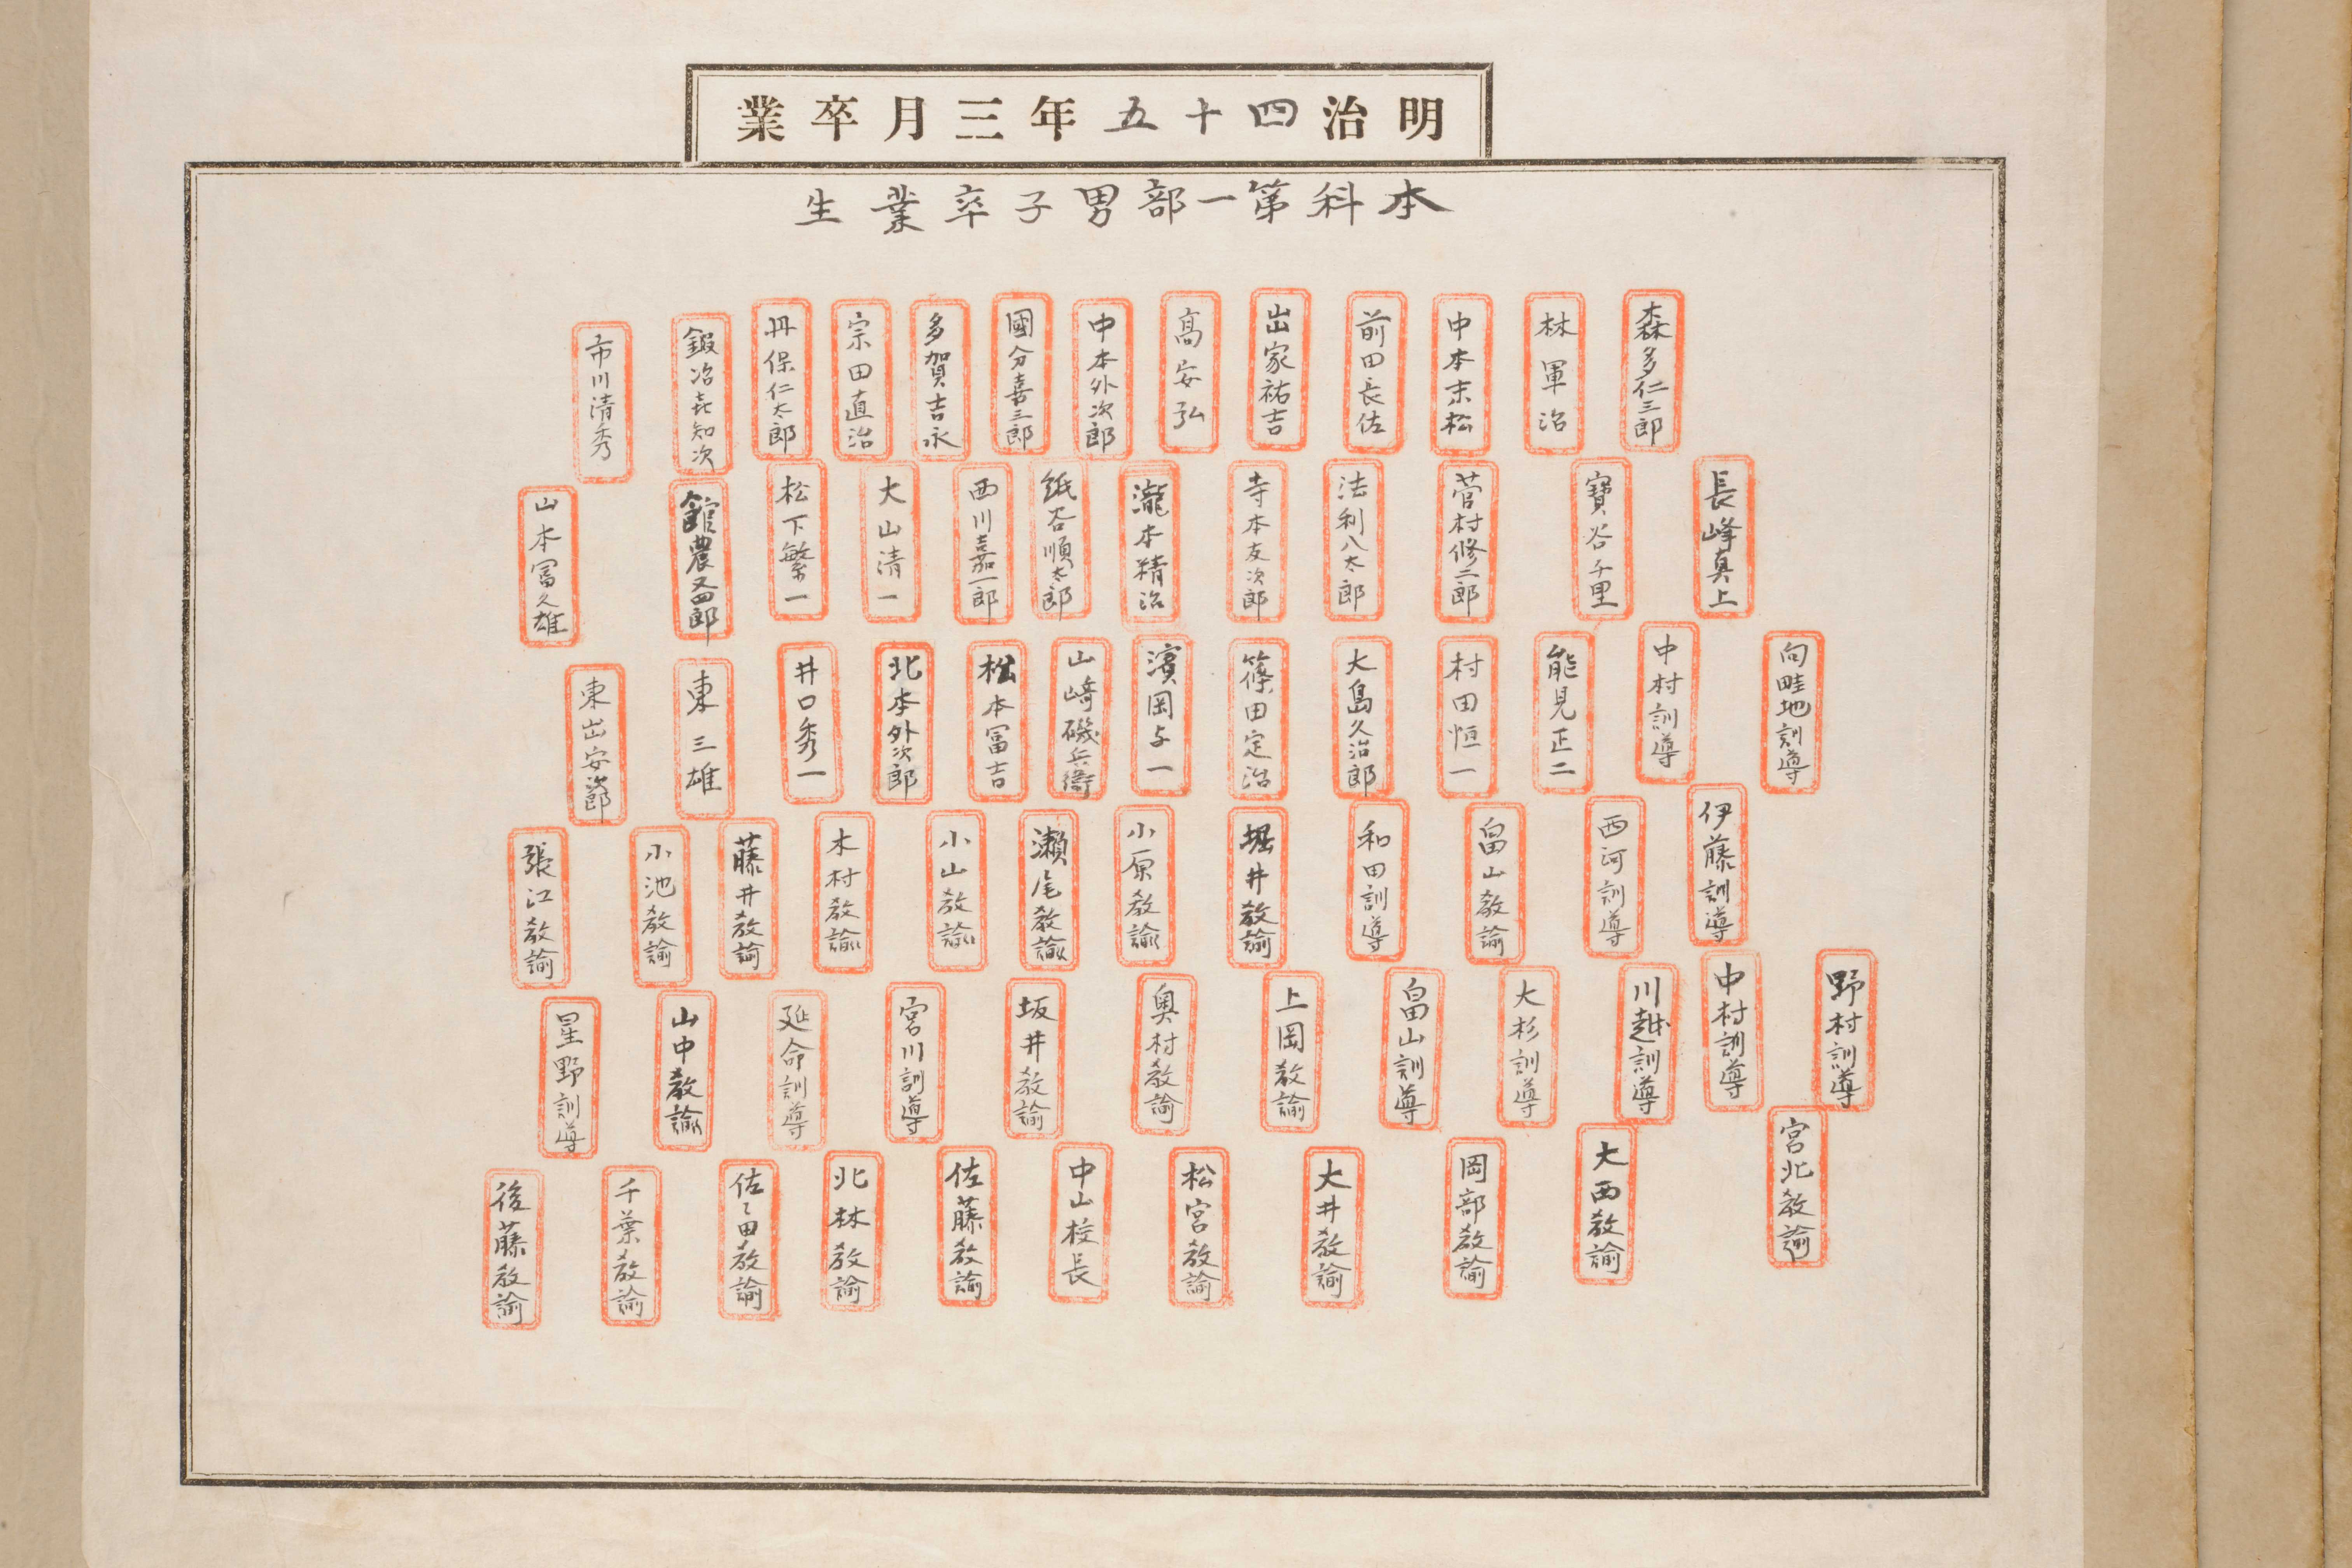 明治四十五年三月卒業
本科第一部男子卒業生
森多仁三郎
林軍治
中本末松
前田長佐
出家祐吉
高安弘
中本外次郎
國分喜三郎
多賀吉永
宗田直治
丹保仁太郎
鍜冶㐂知次
市川清秀
長峰真上
寶谷千里
菅村修二郎
法利八太郎
寺本友次郎
瀧本精治
紙谷順太郎
西川嘉一郎
大山清一
松下繁一
館農又四郎
山本冨久雄
向畦地訓導
中村訓導
能見正二
村田恒一
大島久治郎
篠田定治
濱岡与一
山崎磯兵衛
松本冨吉
北本外次郎
井口秀一
東三雄
東出安次郎
伊藤訓導
西河訓導
畠山教諭
和田訓導
堀井教諭
小原教諭
瀬尾教諭
小山教諭
木村教諭
藤井教諭
小池教諭
張江教諭
野村訓導
中村訓導
川越訓導
大杉訓導
畠山訓導
上岡教諭
奥村教諭
坂井教諭
宮川訓導
延命訓導
山中教諭
星野訓導
宮北教諭
大西教諭
岡部教諭
大井教諭
松宮教諭
中山校長
佐藤教諭
北林教諭
佐々田教諭
千葉教諭
後藤教諭